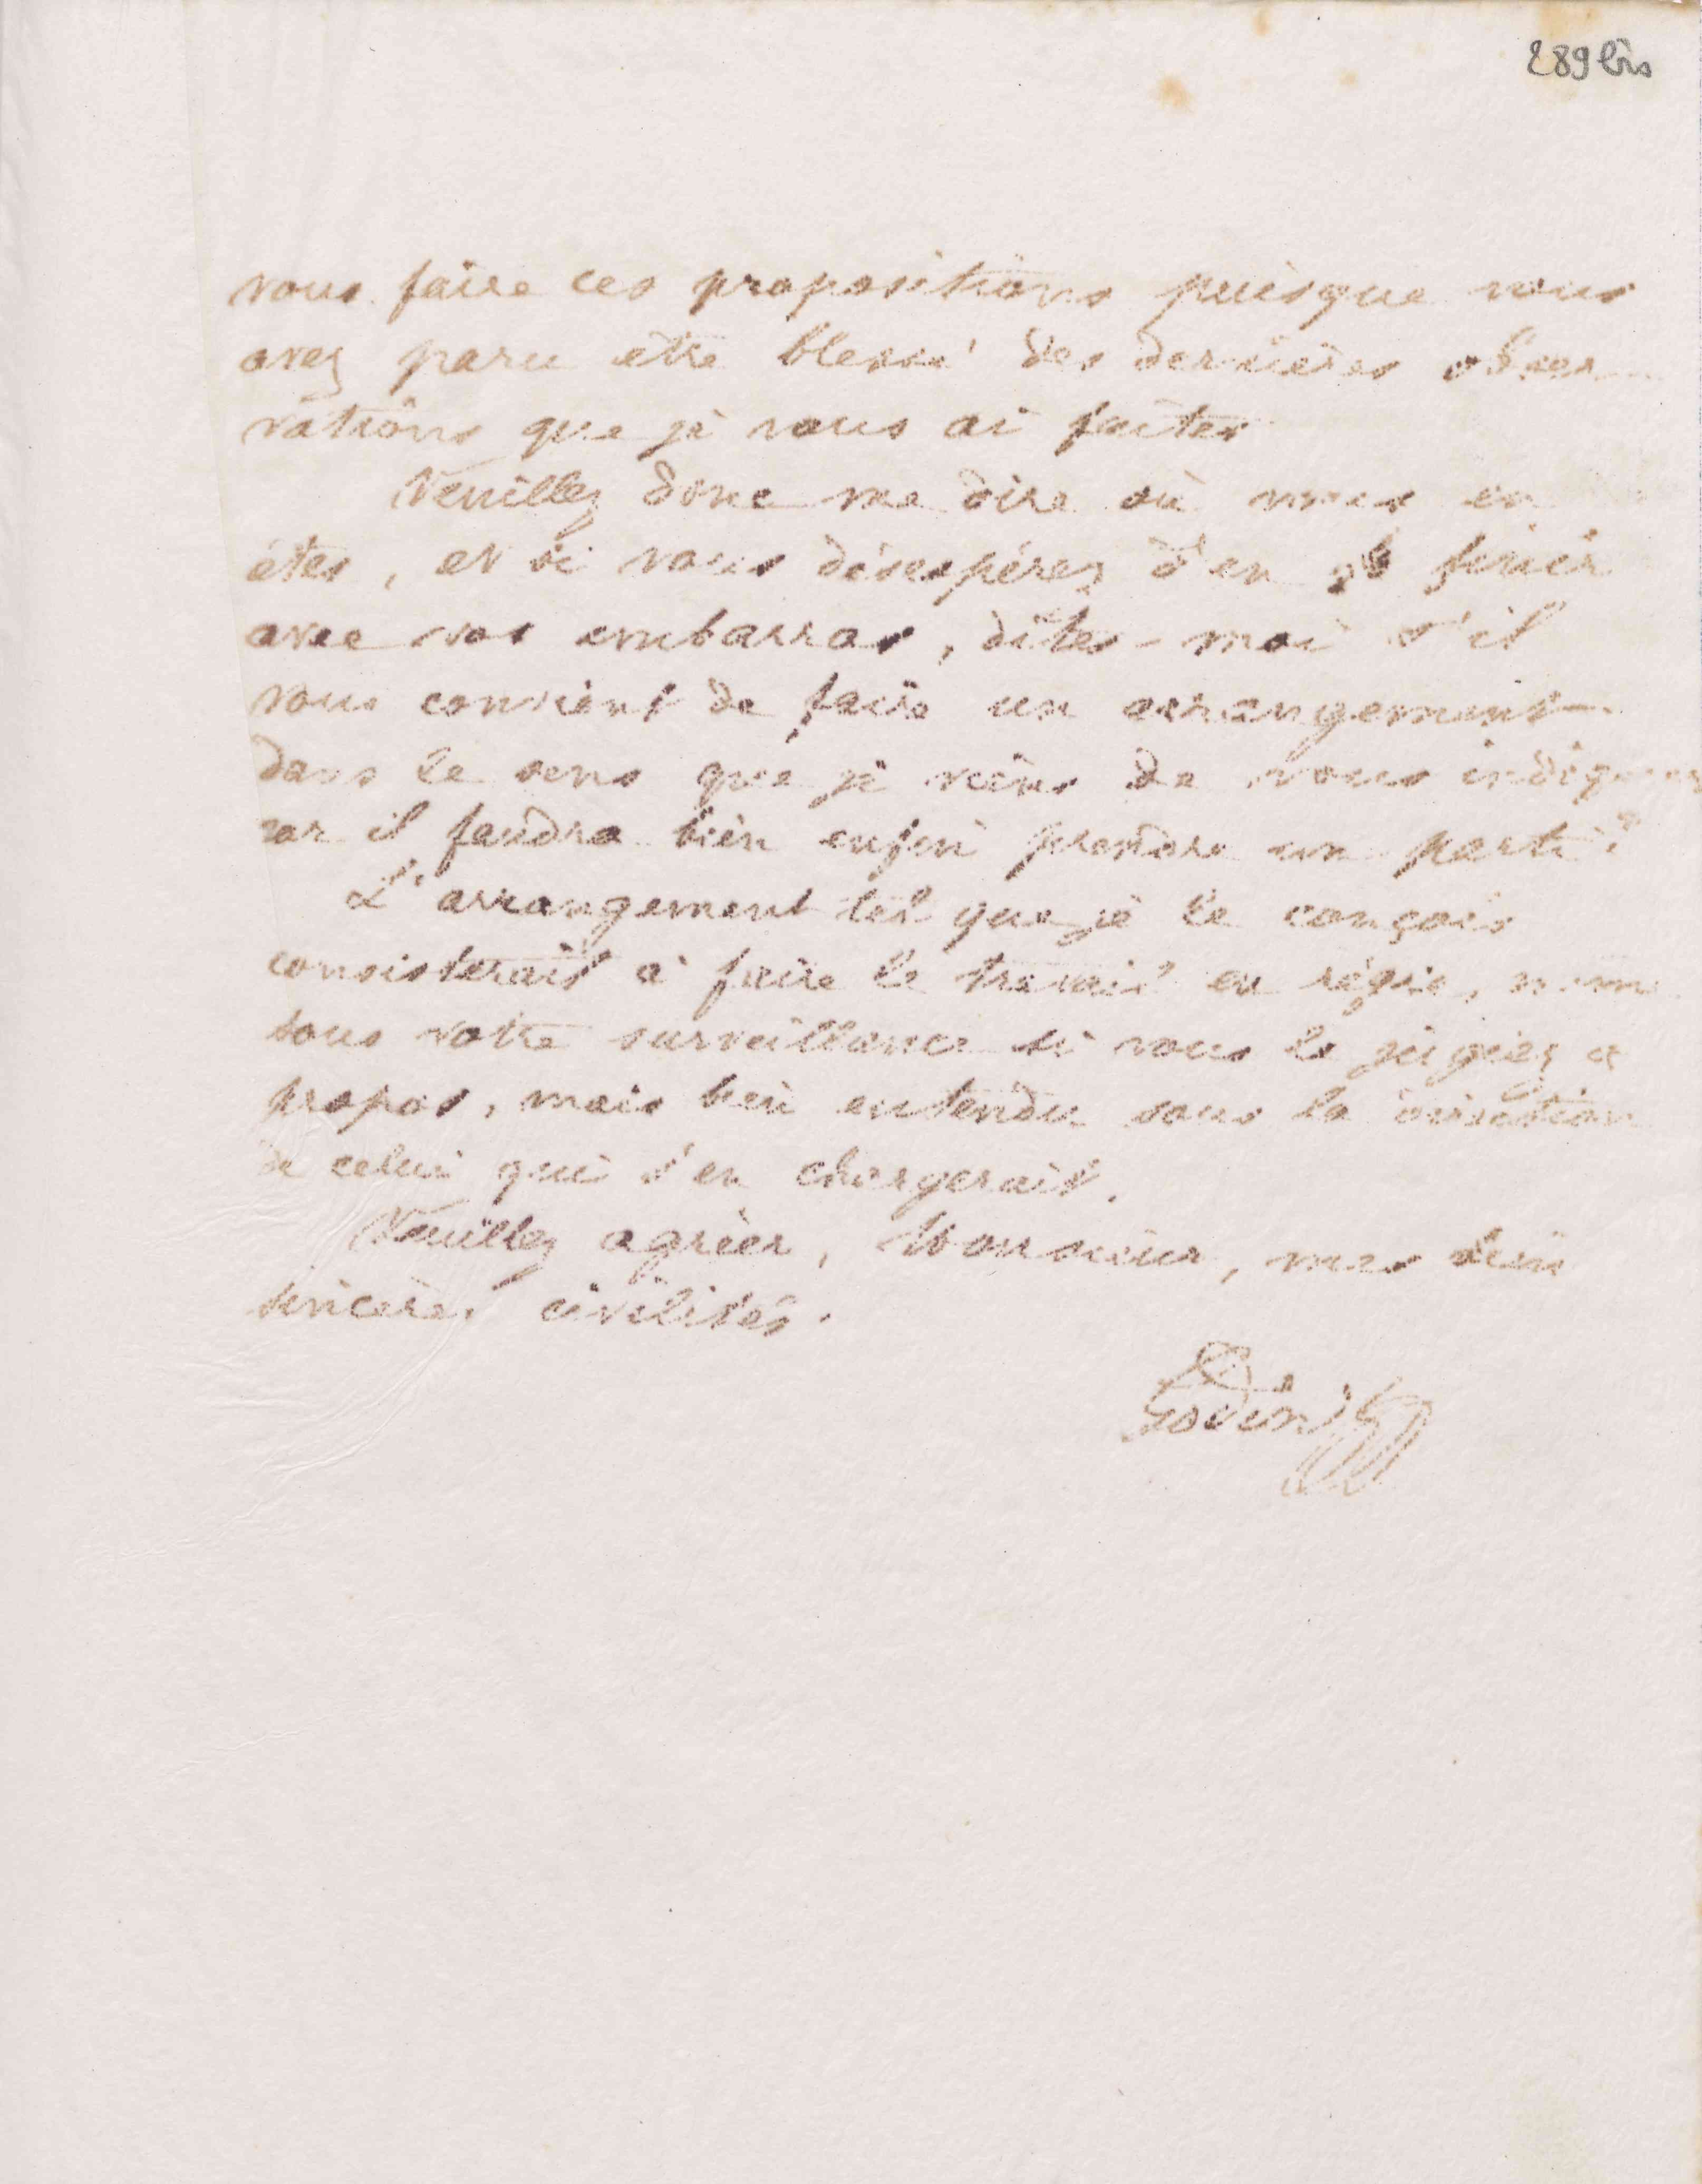 289 bis
vous faire ces propositions puisque vous
avez paru être blessé des dernières obser
vations que je vous ai faites
Veuillez donc me dire où vous en
êtes, et si vous désespérez d'en finir
avec vos embarras, dites-moi s'il
vous convient de faire un arrangement
dans le sens que je viens de vous indiquer
car il faudra bien enfin prendre un parti?
L'arrangement tel que je le conçois
consisterait à faire le travail en régie, même
sous votre surveillance si vous le jugiez à
propos, mais bien entendu sous la direction
de celui qui s'en chargerait.
Veuillez agréer, Monsieur, mes bien
sincères civilités.
Godin